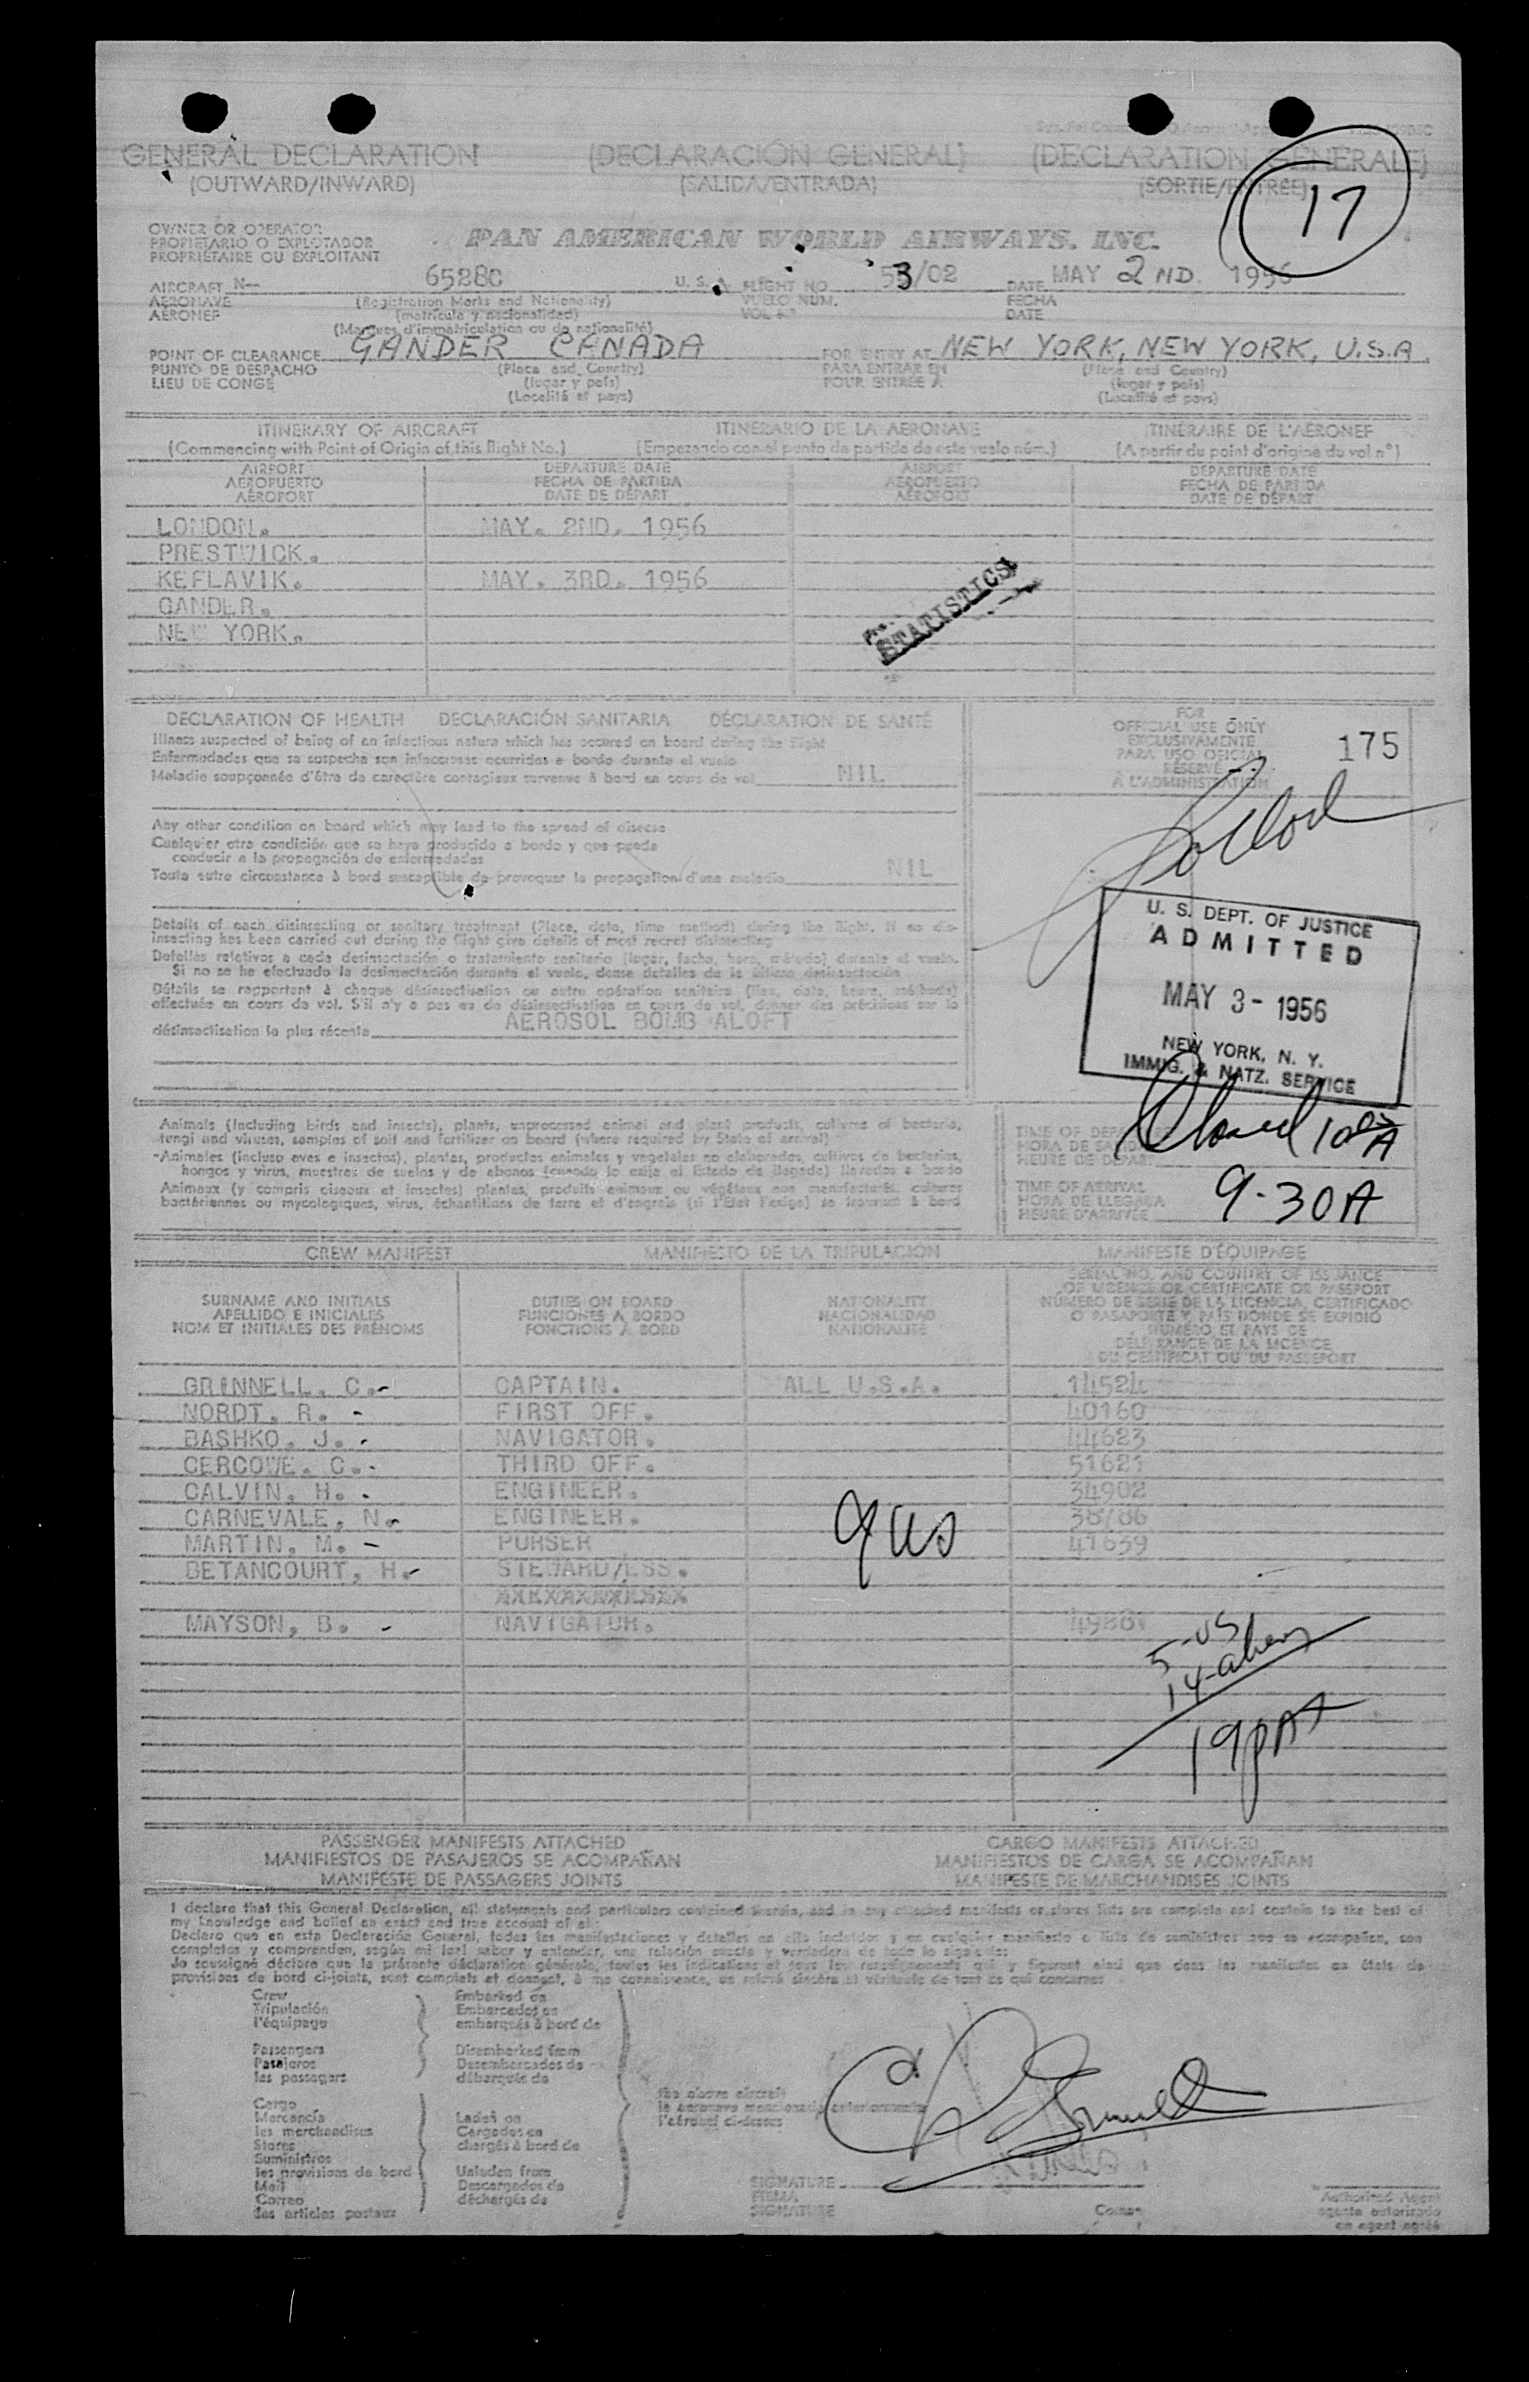 GENERAL DECLARATION (DECLARACIÓN GENERAL) (DECLARATION GENERALE)
(OUTWARD/INWARD) (SALIDA/ENTRADA) (SORTIE/ENTRÉE)
17
OWNER OR OPERATOR
PROPIETARIO O EXPLOTADOR
PROPRIÉTAIRE OU EXPLOITANT
PAN AMERICAN WORLD AIRWAYS, INC.
AIRCRAFT N-- 6528C U.S.A. FLIGHT NO 53/02 DATE MAY 2ND. 1956
AERONAVE (Registration Marks and Nationality) VUELO NUM. FECHA
AÉRONEF (matrícula y nacionalidad) VOL DATE
(Marques d'immatriculation ou de nationalité)
POINT OF CLEARANCE GANDER CANADA FOR ENTRY AT NEW YORK, NEW YORK, U.S.A.
PUNTO DE DESPACHO (Place and Country) PARA ENTRAR EN (Place and Country)
LIEU DE CONGÉ (lugar y país) POUR ENTRÉE À (lugar y país)
(Localité et pays) (Localité et pays)
ITINERARY OF AIRCRAFT ITINERARIO DE LA AERONAVE ITINÉRAIRE DE L'AÉRONEF
(Commencing with Point of Origin of this flight No.) (Empezando con el punto de partida de este vuelo núm.) (A partir du point d'origine du vol n°)
AIRPORT DEPARTURE DATE AIRPORT DEPARTURE DATE
AEROPUERTO FECHA DE PARTIDA AEROPUERTO FECHA DE PARTIDA
AÉROPORT DATE DE DÉPART AÉROPORT DATE DE DÉPART
LONDON. MAY. 2ND. 1956
PRESTWICK.
KEFLAVIK. MAY. 3RD. 1956
GANDER.
NEW YORK.
STATISTICS
DECLARATION OF HEALTH DECLARACIÓN SANITARIA DÉCLARATION DE SANTÉ
Illness suspected of being of an infectious nature which has occured on board during the flight
Enfermedades que se sospecha son infecciosas ocurridas a bordo durante el vuelo
Maladie soupçonnée d'être de caractère contagieux survenue à bord en cours de vol NIL
FOR
OFFICIAL USE ONLY
EXCLUSIVAMENTE
PARA USO OFICIAL
RÉSERVÉ
À L'ADMINISTRATION
175
Any other condition on board which may lead to the spread of disease
Cualquier otra condición que se haya producido a bordo y que puede
conducir a la propagación de enfermedades
Toute autre circonstance à bord susceptible de provoquer la propagation d'une maladie NIL
Details of each disinsecting or sanitary treatment (Place, date, time method) during the flight. If no dis-
insecting has been carried out during the flight give details of most recent disinsecting
Detalles relativos a cada desinsectación o tratamiento sanitario (lugar, fecha, hora, método) durante el vuelo.
Si no se ha efectuado la desinsectación durante el vuelo, dense detalles de la última desinsectación
Détails se rapportant à chaque désinsectisation ou autre opération sanitaire (lieu, date, heure, méthode)
effectuée en cours de vol. S'il n'y a pas eu de désinsectisation en cours de vol, donner des précisions sur la
désinsectisation la plus récente AEROSOL BOMB ALOFT
U. S. DEPT. OF JUSTICE
ADMITTED
MAY 3 - 1956
NEW YORK, N. Y.
IMMIG. & NATZ. SERVICE
Animals (including birds and insects), plants, unprocessed animal and plant products, cultures of bacteria,
fungi and viruses, samples of soil and fertilizer on board (where required by State of arrival)
Animales (incluso aves e insectos), plantas, productos animales y vegetales no elaborados, cultivos de bacterias,
hongos y virus, muestras de suelos y de abonos (cuando lo exija el Estado de llegada) llevados a bordo
Animaux (y compris oiseaux et insectes) plantes, produits animaux ou végétaux non manufacturés, cultures
bactériennes ou mycologiques, virus, échantillons de terre et d'engrais (si l'État l'exige) se trouvant à bord
TIME OF DEPARTURE
HORA DE SALIDA
HEURE DE DÉPART
TIME OF ARRIVAL
HORA DE LLEGADA 9-30A
HEURE D'ARRIVÉE
CREW MANIFEST MANIFIESTO DE LA TRIPULACIÓN MANIFESTE D'ÉQUIPAGE
SURNAME AND INITIALS DUTIES ON BOARD NATIONALITY SERIAL NO. AND COUNTRY OF ISSUANCE
APELLIDO E INICIALES FUNCIONES A BORDO NACIONALIDAD OF LICENCE OR CERTIFICATE OR PASSPORT
NOM ET INITIALES DES PRÉNOMS FONCTIONS À BORD NATIONALITÉ NÚMERO DE SERIE DE LA LICENCIA, CERTIFICADO
O PASAPORTE Y PAÍS DONDE SE EXPIDIÓ
NUMÉRO ET PAYS DE
DÉLIVRANCE DE LA LICENCE
DU CERTIFICAT OU DU PASSEPORT
GRINNELL, C. - CAPTAIN. ALL U.S.A. 14524
NORDT, R. - FIRST OFF. 40160
BASHKO, J. - NAVIGATOR. 44623
CERCOWE, C. - THIRD OFF. 51621
CALVIN, H. - ENGINEER. 34902
CARNEVALE, N. - ENGINEER. 38786
MARTIN, M. - PURSER 41639
BETANCOURT, H. - STEWARD/ESS.
MAYSON, B. - NAVIGATOR.
9 US
5-US
14-aliens
19 PAX
PASSENGER MANIFESTS ATTACHED CARGO MANIFESTS ATTACHED
MANIFIESTOS DE PASAJEROS SE ACOMPAÑAN MANIFIESTOS DE CARGA SE ACOMPAÑAN
MANIFESTE DE PASSAGERS JOINTS MANIFESTE DE MARCHANDISES JOINTS
I declare that this General Declaration, all statements and particulars contained therein, and in any attached manifests or stores lists are complete and contain to the best of
my knowledge and belief an exact and true account of all:
Declaro que en esta Declaración General, todas las manifestaciones y detalles en ella incluidos y en cualquier manifiesto o lista de suministros que se acompañen, son
completos y comprenden, según mi leal saber y entender, una relación exacta y verdadera de todo lo siguiente:
Je soussigné déclare que la présente déclaration générale, toutes les indications et tous les renseignements qui y figurent ainsi que dans les manifestes ou états de
provisions de bord ci-joints, sont complets et donnent, à ma connaissance, un relevé sincère et véritable de tout ce qui concerne
Crew Embarked on
Tripulación Embarcados en
l'équipage embarqués à bord de
Passengers Disembarked from
Pasajeros Desembarcados de
les passagers débarqués de
the above aircraft
la aeronave mencionada anteriormente
l'aéronef ci-dessus
Cargo
Mercancía Laden on
les merchandises Cargados en
Stores chargés à bord de
Suministros
les provisions de bord Unladen from
Mail Descargados de
Correo déchargés de
des articles postaux
SIGNATURE
FIRMA
SIGNATURE
Authorized Agent
agente autorizado
en agent agréé